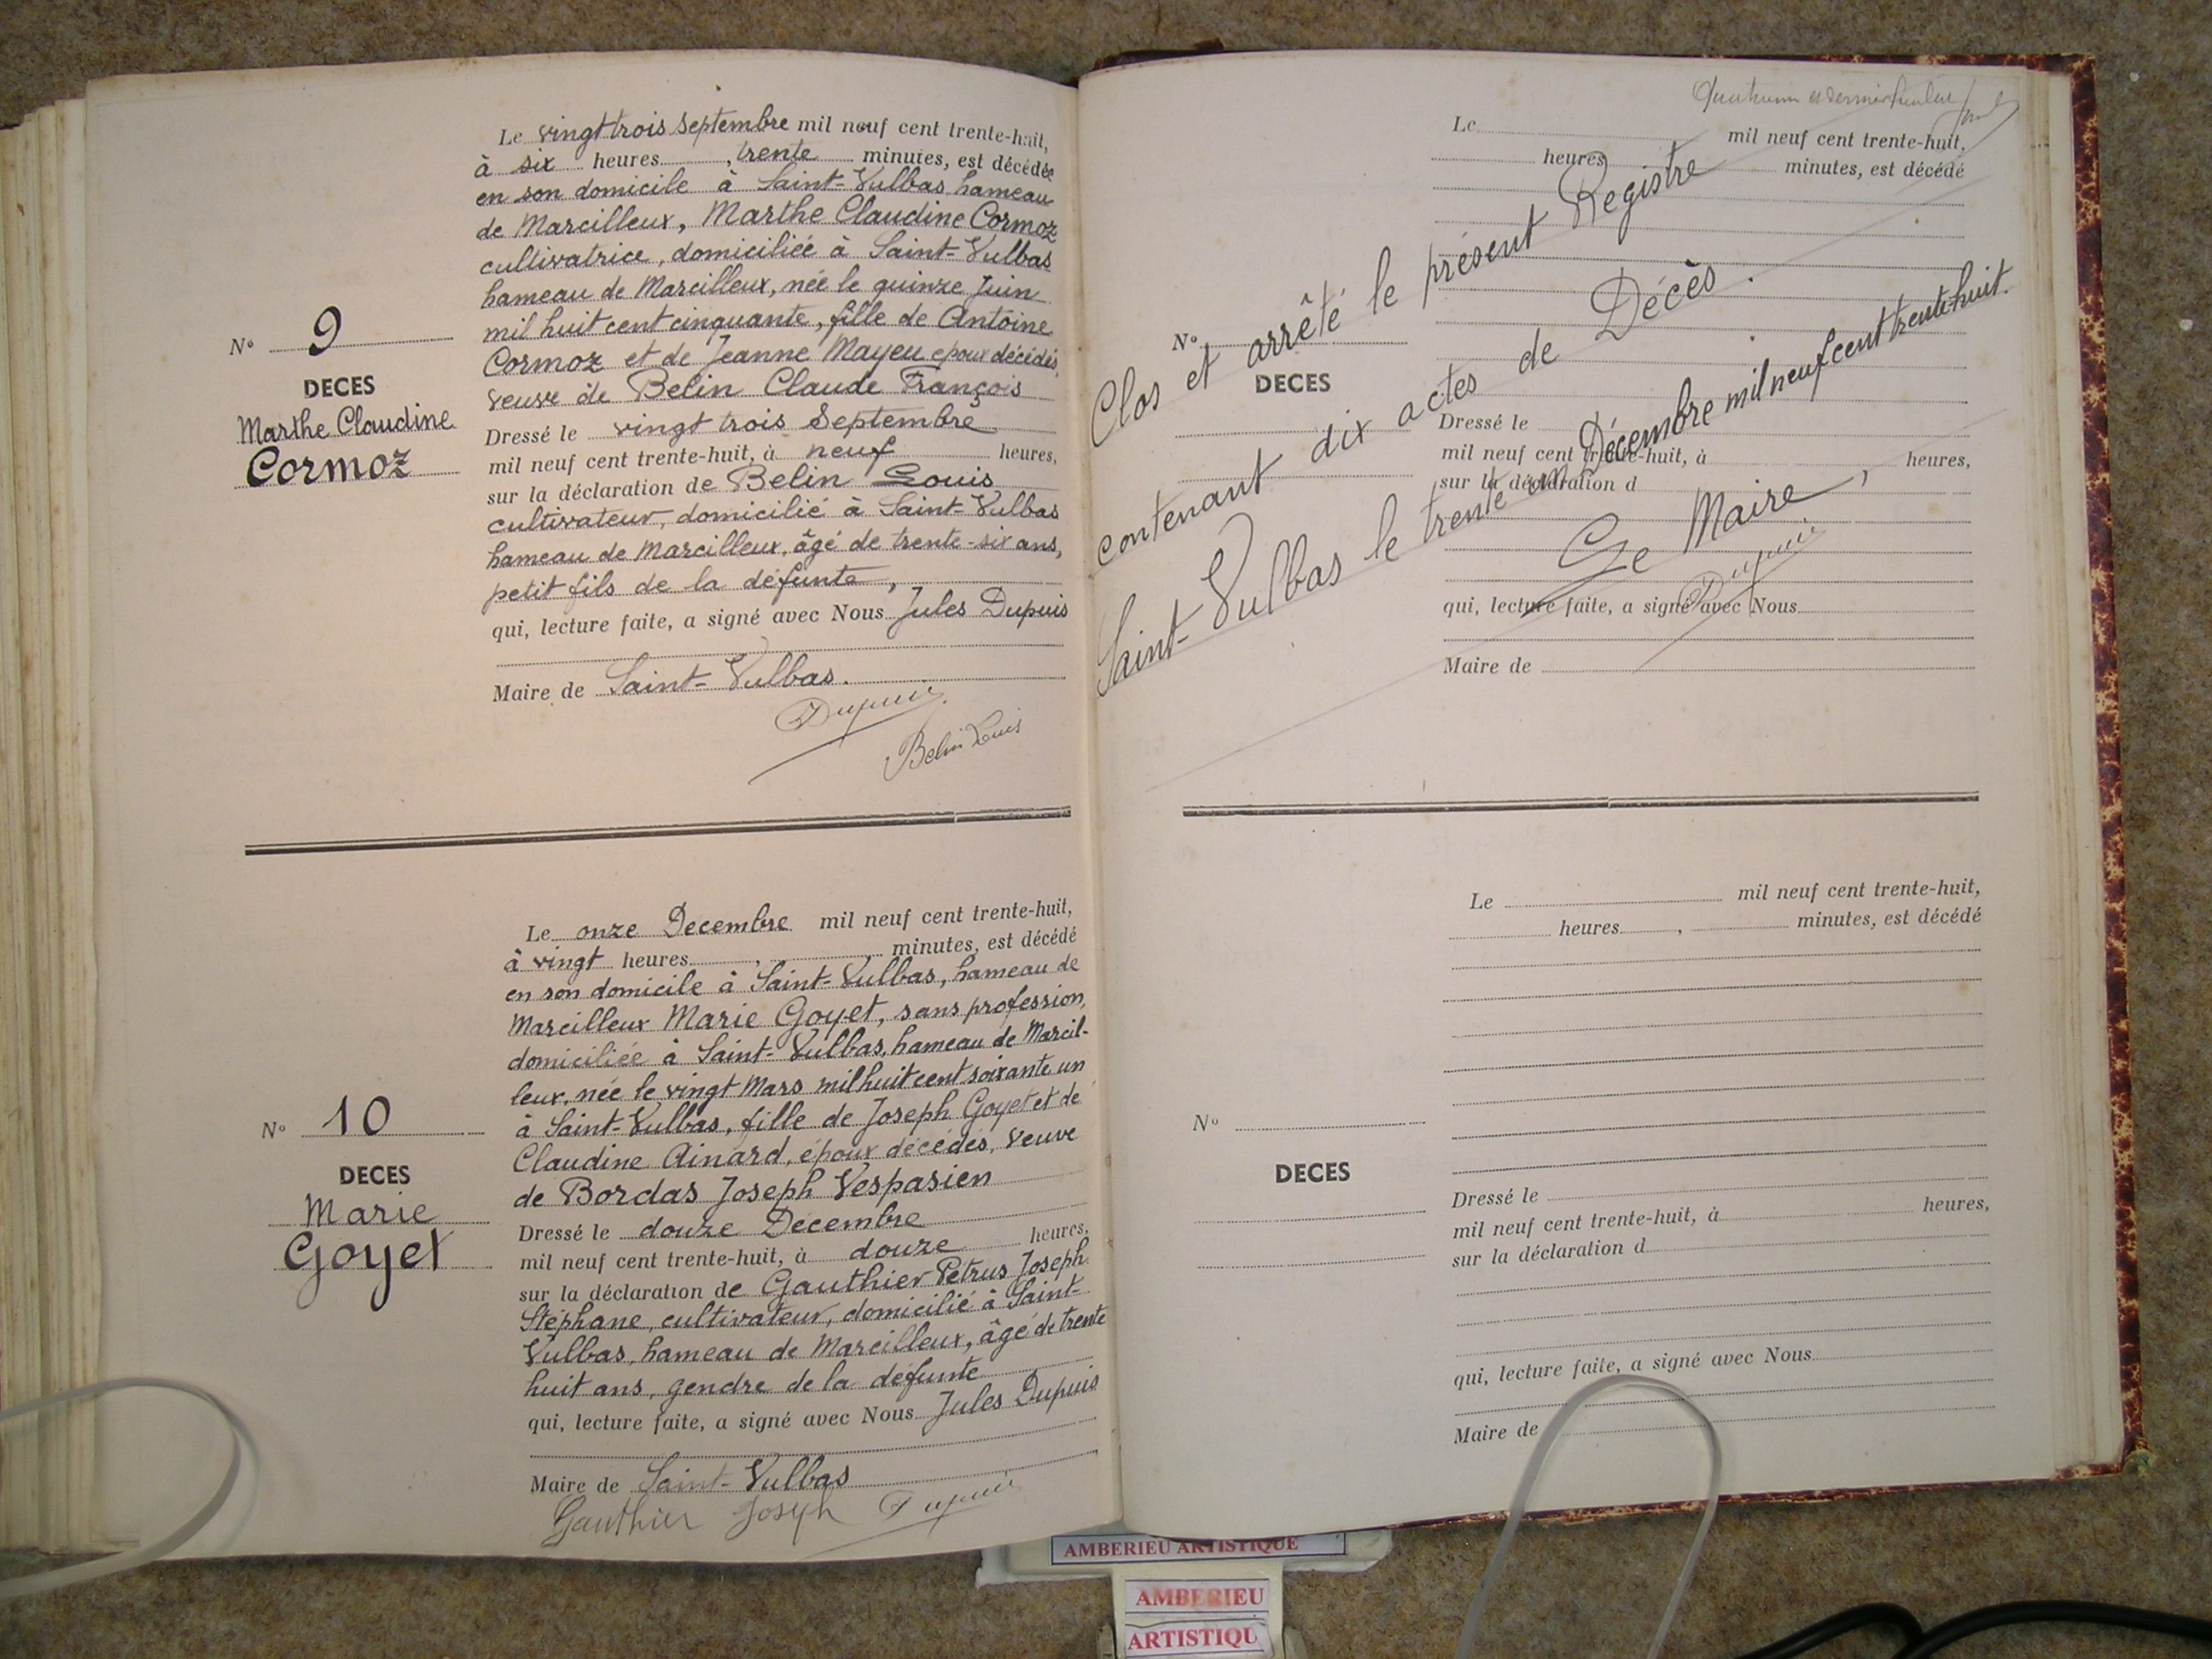 Le vingt trois Septembre mil neuf cent trente-huit,
à six heures , trente minutes, est décédée
en son domicile à Saint-Vulbas hameau
de Marcilleux, Marthe Claudine Cormoz
cultivatrice, domiciliée à Saint-Vulbas
hameau de Marcilleux, née le quinze Juin
mil huit cent cinquante, fille de Antoine
Cormoz et de Jeanne Mayeu epoux décédés,
veuve de Belin Claude François
Dressé le vingt trois Septembre
mil neuf cent trente-huit, à neuf heures,
sur la déclaration de Belin Louis
cultivateur, domicilié à Saint-Vulbas
hameau de Marcilleux, âgé de trente-six ans,
petit fils de la défunte,
qui, lecture faite, a signé avec Nous Jules Dupuis
Maire de Saint-Vulbas.
Dupuis
Belin Louis
N° 9
DECES
Marthe Claudine
Cormoz
Le onze Decembre mil neuf cent trente-huit,
à vingt heures , minutes, est décédé
en son domicile à Saint-Vulbas, hameau de
Marcilleux Marie Goyet, sans profession,
domiciliée à Saint-Vulbas, hameau de Marcil-
leux, née le vingt Mars mil huit cent soixante un
à Saint-Vulbas, fille de Joseph Goyet et de
Claudine Ainard, époux décédés, veuve
de Bordas Joseph Vespasien
Dressé le douze Décembre
mil neuf cent trente-huit, à douze heures,
sur la déclaration de Gauthier Pétrus Joseph
Stéphane, cultivateur, domicilié à Saint-
Vulbas, hameau de Marcilleux, âgé de trente
huit ans, gendre de la défunte
qui, lecture faite, a signé avec Nous Jules Dupuis
Maire de Saint-Vulbas
Gauthier Joseph Dupuis
N° 10
DECES
Marie
Goyet
Le mil neuf cent trente-huit,
heures minutes, est décédé
N°
DECES
Dressé le
mil neuf cent trente-huit, à heures,
sur la déclaration d
qui, lecture faite, a signé avec Nous
Maire de
Clos et arrêté le présent Registre
contenant dix actes de Décès.
Saint-Vulbas le trente un Décembre mil neuf cent trente huit.
Le Maire,
Dupuis
Le mil neuf cent trente-huit,
heures , minutes, est décédé
N°
DECES
Dressé le
mil neuf cent trente-huit, à heures,
sur la déclaration d
qui, lecture faite, a signé avec Nous
Maire de
AMBERIEU ARTISTIQUE
AMBERIEU
ARTISTIQU